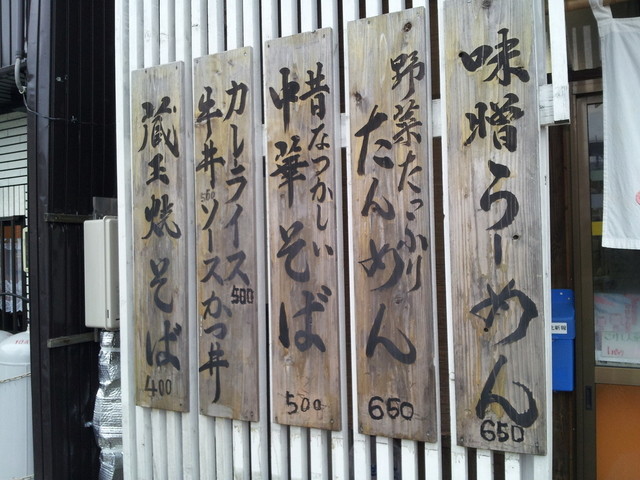 味噌らーめん
650
野菜たっぷり
たんめん
650
昔なつかしい
中華そば
500
カレーライス 500
牛丼 ソースカツ丼
蔵王焼そば
400